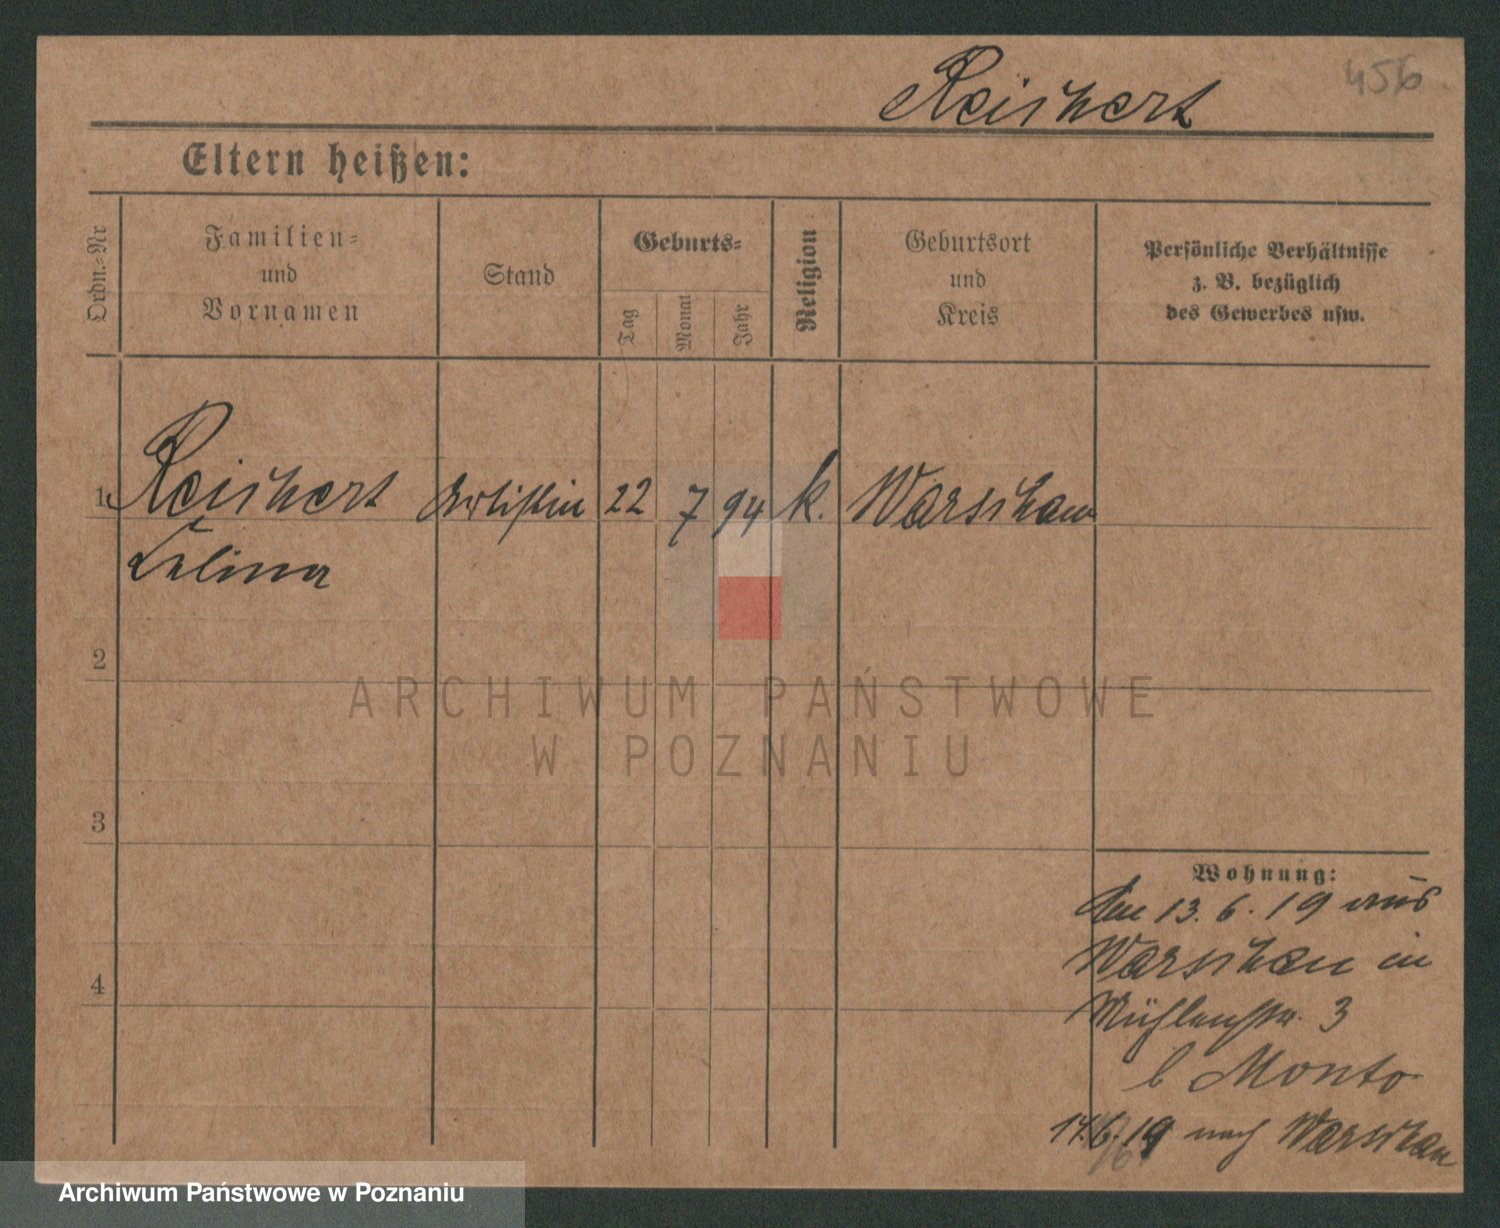 456
Reichert
Eltern heißen:
Ordn.-Nr
Familien-
und
Vornamen
Stand
Geburts-
Tag
Monat
Jahr
Religion
Geburtsort
und
Kreis
Persönliche Verhältnisse
z. B. bezüglich
des Gewerbes usw.
1 Reichert Artistin 22 7 94 k. Warschau
Celina
2
3
4
ARCHIWUM PAŃSTWOWE
W POZNANIU
Wohnung:
den 13.6.19 aus
Warschau in
Mühlenstr. 3
b Monto
14.6.19 nach Warschau
Archiwum Państwowe w Poznaniu